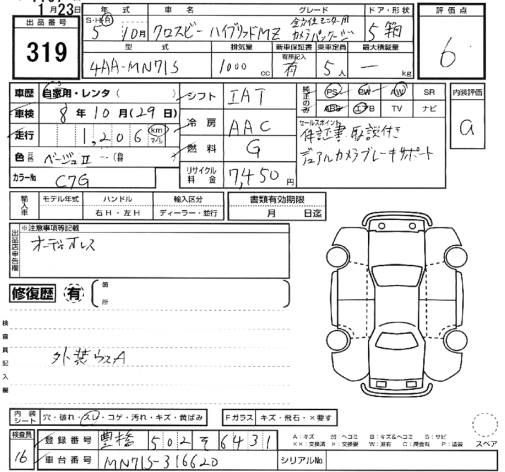 1月23日
出品番号
319
年式 車名 グレード ドア・形状 評価点
S・H・R
5 10月 クロスビー ハイブリッドMZ 全方位モニター用カメラパッケージ 5 箱 6
型式 排気量 新車保証書 乗車定員 最大積載量
有 無記入
4AA-MN71S 1000cc 有 5人 — kg
車歴 自家用・レンタ( ) シフト IAT 純正のみ PS PW AW SR 内装評価
車検 8年10月(29日) 冷房 AAC ABS エアB TV ナビ a
走行 1,206 km マイル 燃料 G セールスポイント
保証書取説付き
デュアルカメラブレーキサポート
色 元色 ベージュⅡ 色替
リサイクル料金 7,450円
カラーNo C7G
輸入車 モデル年式 ハンドル 輸入区分 書類有効期限
右H・左H ディーラー・並行 月 日迄
出品店申告欄 ※注意事項等記載
オーディオレス
修復歴 有 箇所
検査員記入欄
外装ウスA
内装シート 穴・破れ・スレ・コゲ・汚れ・キズ・黄ばみ Fガラス キズ・飛石・×要す
検査員 16
登録番号 豊橋 502 そ 6431
車台番号 MN71S-316620 シリアルNo
A:キズ U:ヘコミ B:キズ&ヘコミ S:サビ
××:交換済 X:要交換 W:波有 C:腐食有 P:塗装
スペア